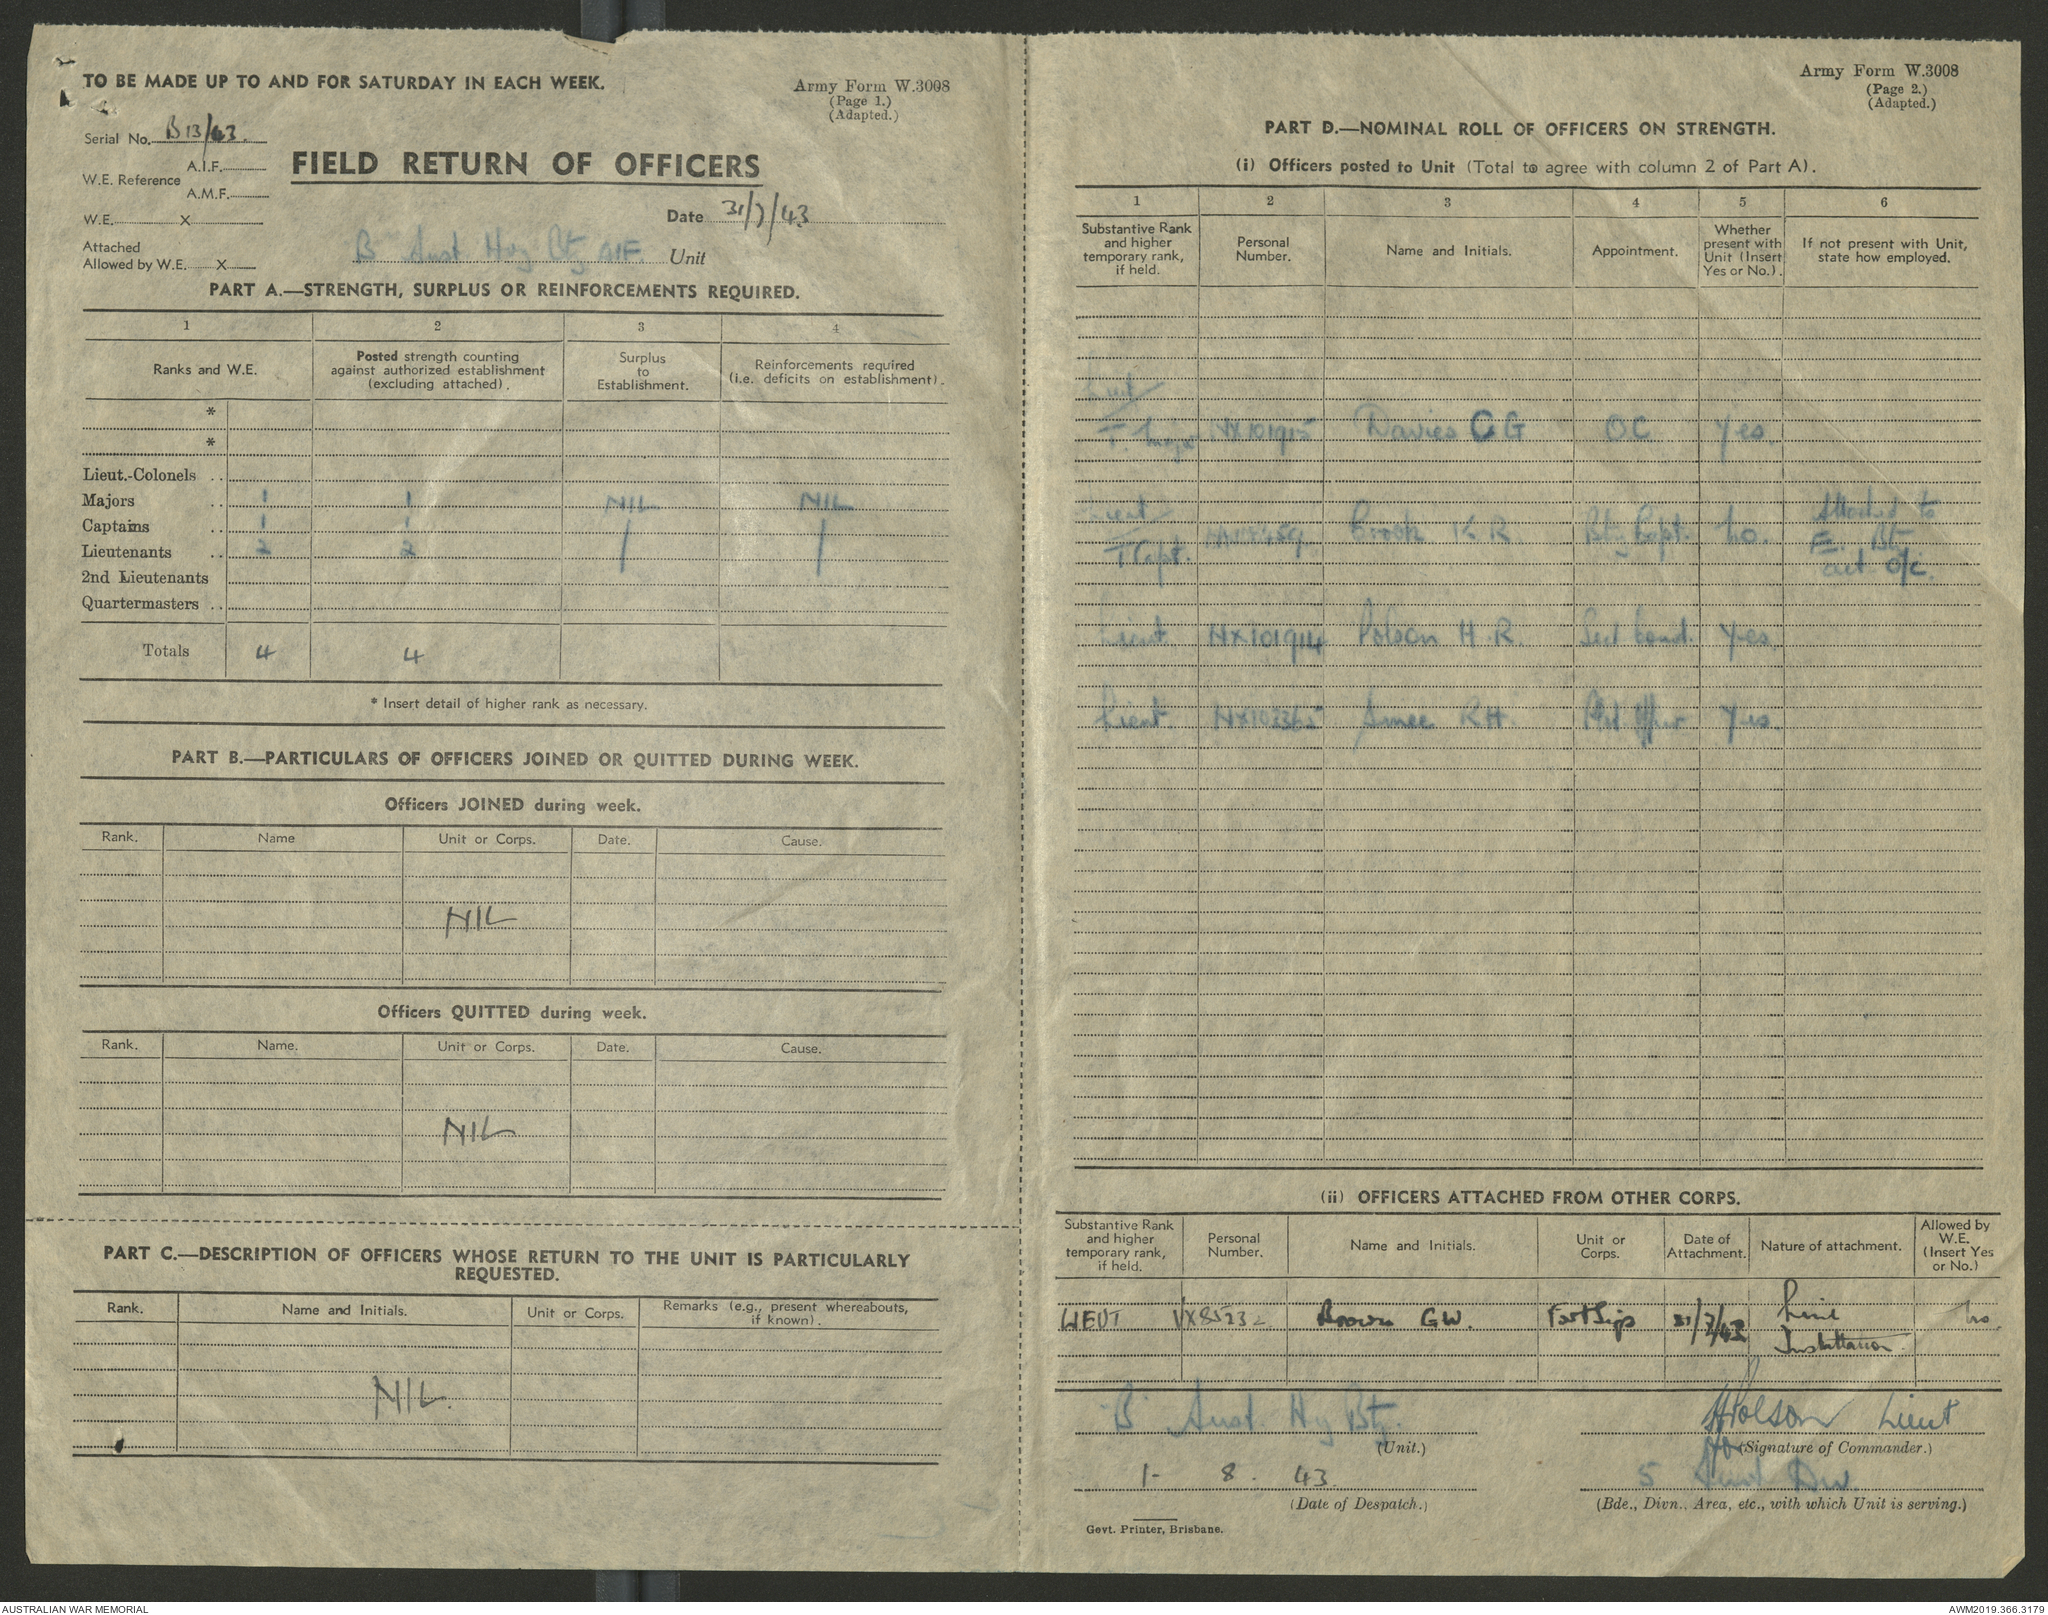 TO BE MADE UP TO AND FOR SATURDAY IN EACH WEEK.
Army Form W.3008
(Page 1.)
(Adapted.)
Serial No. B13/43.
A.I.F.
W.E. Reference
A.M.F.
FIELD RETURN OF OFFICERS
W.E. X
Date 31/7/43
Attached
Allowed by W.E. X
B Aust Hvy Bty AIF. Unit
PART A.—STRENGTH, SURPLUS OR REINFORCEMENTS REQUIRED.
1 2 3 4
Ranks and W.E.
Posted strength counting
against authorized establishment
(excluding attached).
Surplus
to
Establishment.
Reinforcements required
(i.e. deficits on establishment).
*
*
Lieut.-Colonels ..
Majors .. 1 1 NIL NIL
Captains .. 1 1
Lieutenants .. 2 2
2nd Lieutenants
Quartermasters ..
Totals 4 4
* Insert detail of higher rank as necessary.
PART B.—PARTICULARS OF OFFICERS JOINED OR QUITTED DURING WEEK.
Officers JOINED during week.
Rank. Name Unit or Corps. Date. Cause.
NIL
Officers QUITTED during week.
Rank. Name. Unit or Corps. Date. Cause.
NIL
PART C.—DESCRIPTION OF OFFICERS WHOSE RETURN TO THE UNIT IS PARTICULARLY
REQUESTED.
Rank. Name and Initials. Unit or Corps.
Remarks (e.g., present whereabouts,
if known).
NIL.
Army Form W.3008
(Page 2.)
(Adapted.)
PART D.—NOMINAL ROLL OF OFFICERS ON STRENGTH.
(i) Officers posted to Unit (Total to agree with column 2 of Part A).
1 2 3 4 5 6
Substantive Rank
and higher
temporary rank,
if held.
Personal
Number.
Name and Initials.
Appointment.
Whether
present with
Unit (Insert
Yes or No.).
If not present with Unit,
state how employed.
Lieut/
T. Major NX101915 Davies C G OC Yes.
Lieut/ Attached to
T/Capt. K R. Bty Capt. No. Bty
act O/C.
Lieut NX101914 Polson H.R. Yes.
Lieut NX103365 Smee RH Yes.
(ii) OFFICERS ATTACHED FROM OTHER CORPS.
Substantive Rank
and higher
temporary rank,
if held.
Personal
Number.
Name and Initials.
Unit or
Corps.
Date of
Attachment.
Nature of attachment.
Allowed by
W.E.
(Insert Yes
or No.)
LIEUT VX85232 Brown GW. Fort Sigs 31/7/43 Line No.
Installation
"B" Aust. Hvy Bty.
(Unit.)
HPolson Lieut
for (Signature of Commander.)
1- 8. 43.
(Date of Despatch.)
5 Aust Div.
(Bde., Divn., Area, etc., with which Unit is serving.)
Govt. Printer, Brisbane.
AUSTRALIAN WAR MEMORIAL
AWM2019.366.3179